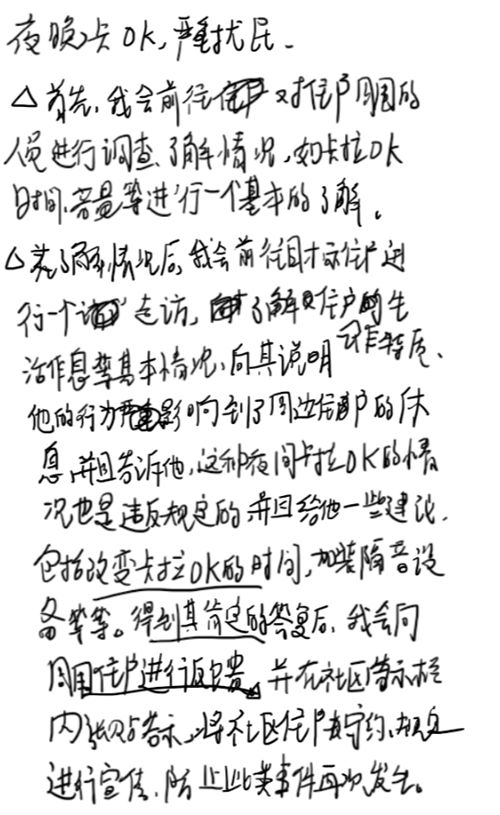 夜晚卡OK，严重扰民.
△首先，我会前往住户对住户周围的
人员进行调查、了解情况，如卡拉OK
时间、音量等进行一个基本的了解。
△先了解情况后，我会前往目标住户进
行一个走访，了解住户的生
活作息等基本情况、工作特质、向其说明
他的行为严重影响到了周边住户的休
息，并且告诉他，这种夜间卡拉OK的情
况也是违反规定的并且给他一些建议.
包括改变卡拉OK的时间，加装隔音设
备等等。得到其肯定的答复后，我会向
周围住户进行反馈，并在社区告示栏
内张贴告示，将社区住户守约、规定
进行宣传，防止此类事件再次发生。